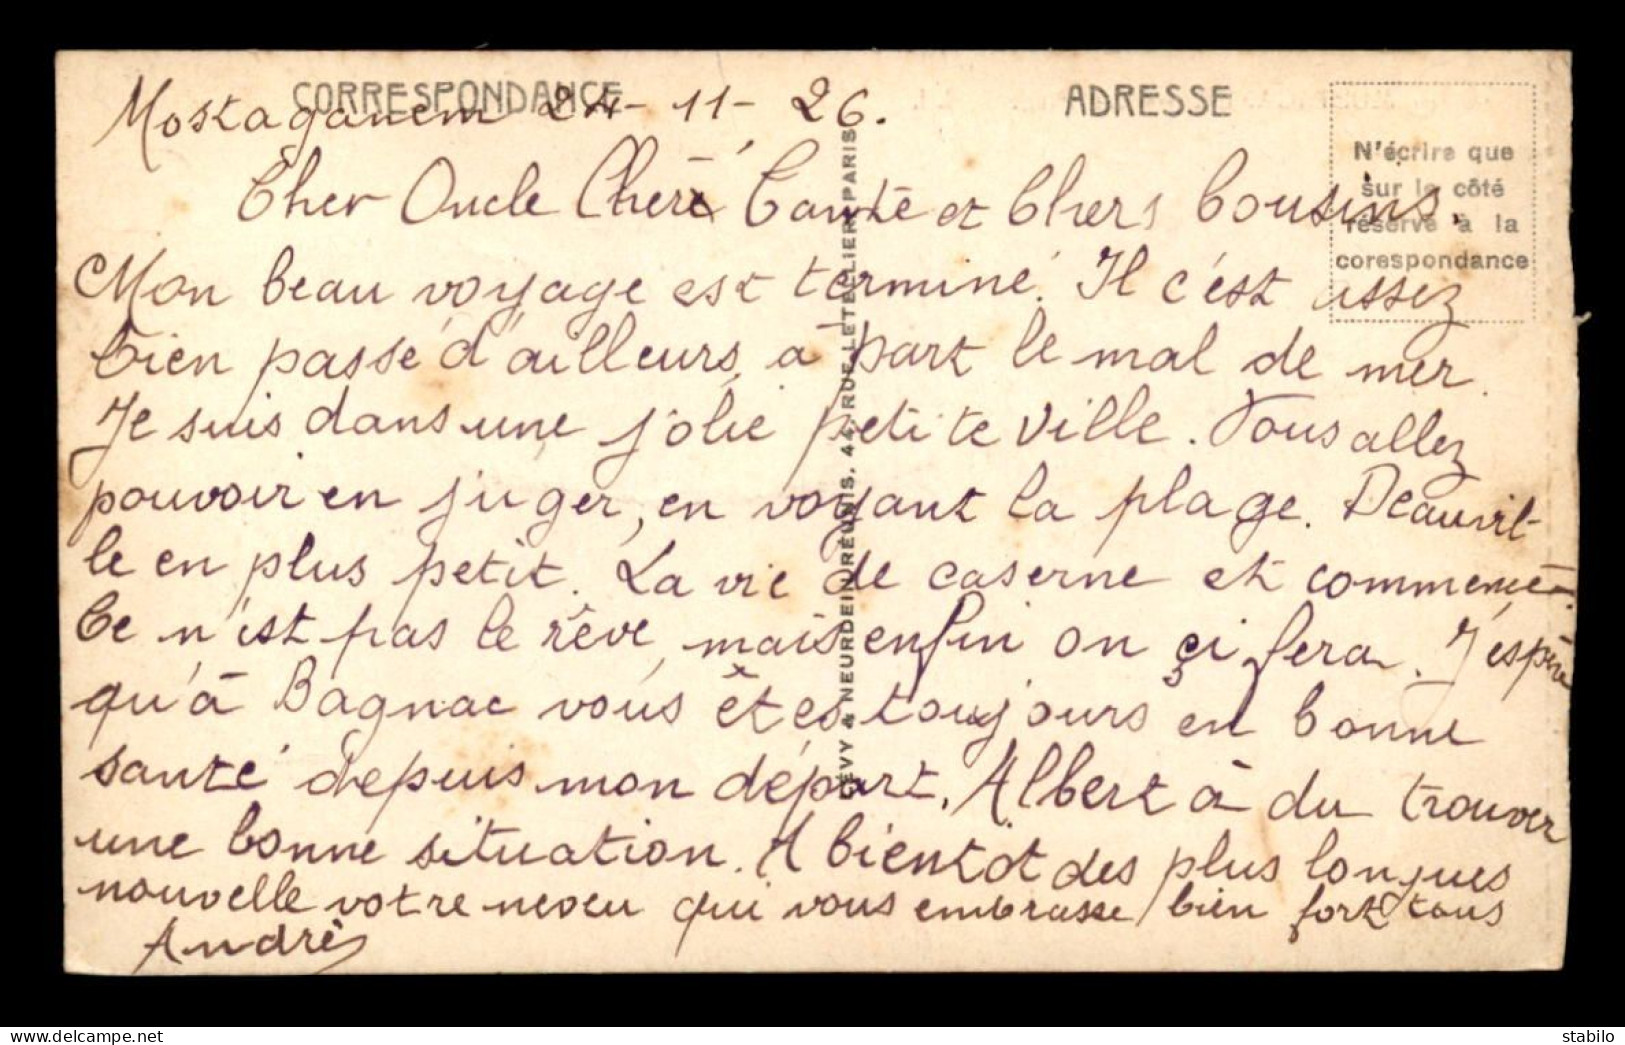 CORRESPONDANCE
ADRESSE
N'écrire que
sur le côté
réservé à la
corespondance
Mostaganem 24-11-26.
Cher Oncle Chère Tante et Chers Cousins.
Mon beau voyage est terminé. Il c'est assez
bien passé d'ailleurs, à part le mal de mer.
Je suis dans une jolie petite ville. Vous allez
pouvoir en juger, en voyant la plage. Deauvil-
le en plus petit. La vie de caserne et commencé.
Ce n'est pas le rêve, mais enfin on çi fera. J'espère
qu'à Bagnac vous êtes toujours en bonne
santé depuis mon départ. Albert à du trouver
une bonne situation. A bientôt des plus longues
nouvelle votre neveu qui vous embrasse bien fort tous
André
LEVY & NEURDEIN RÉUNIS, 44, RUE LETELLIER, PARIS
stabilo